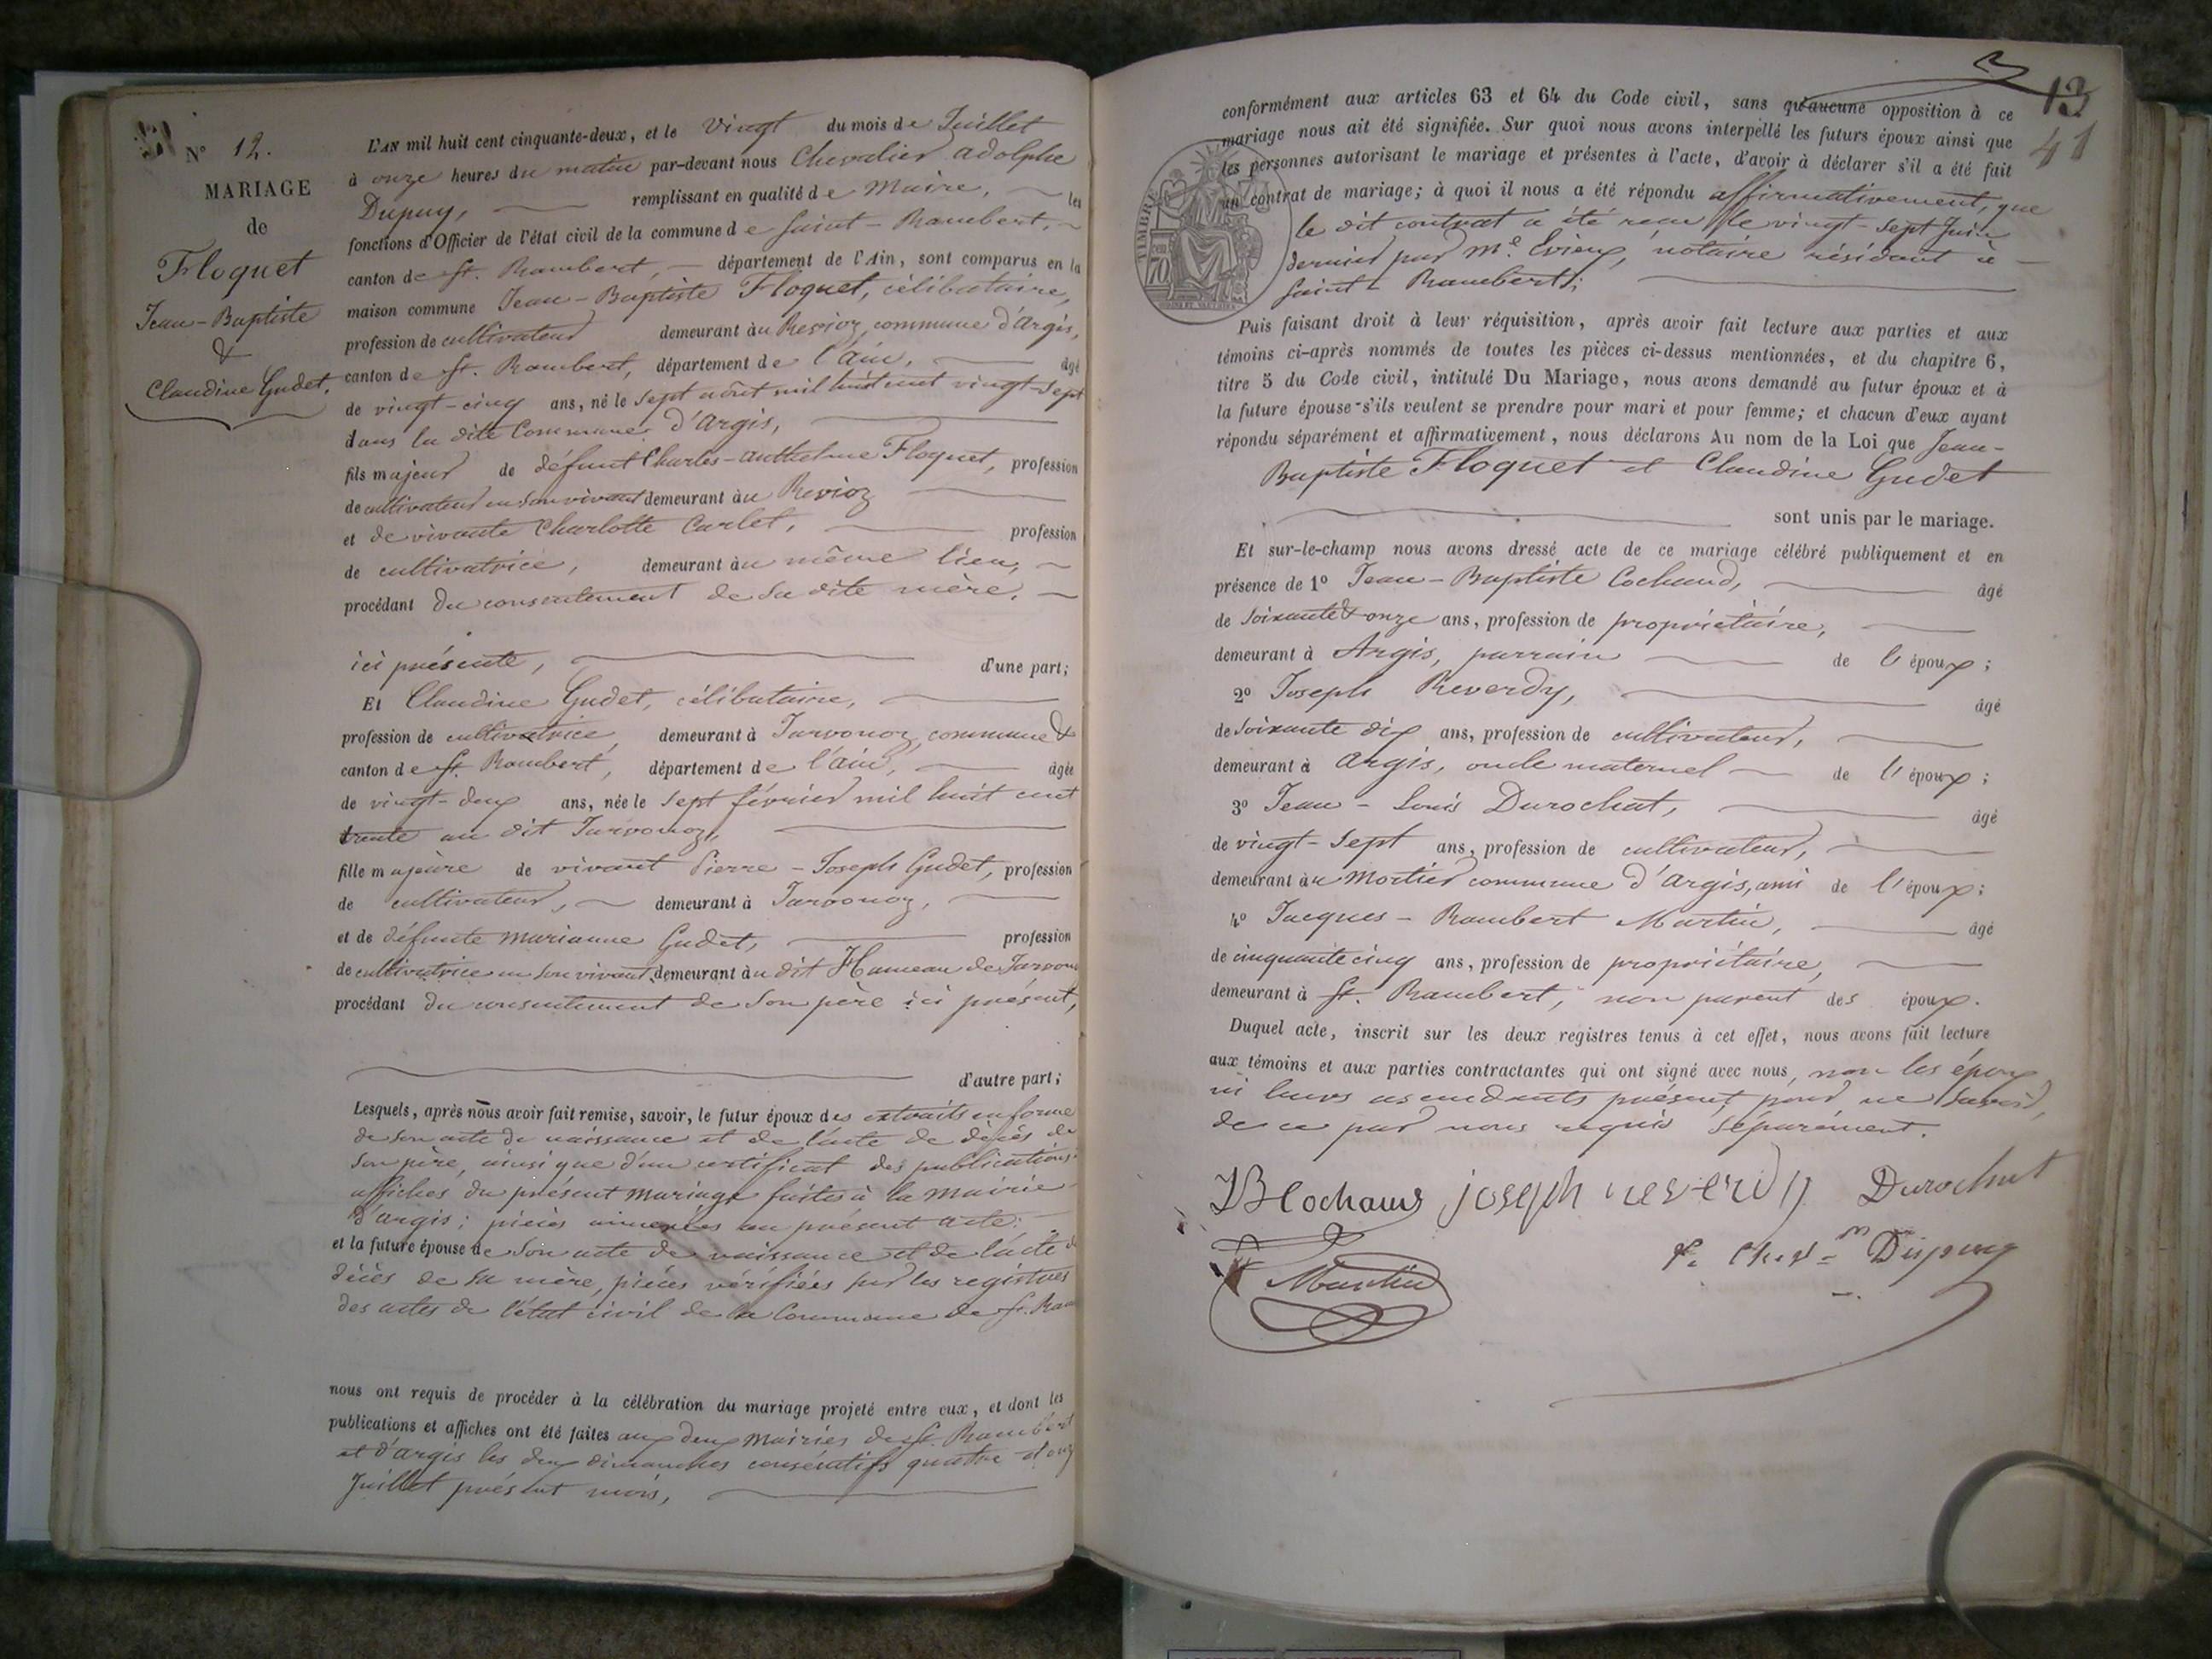 N° 12.
MARIAGE
de
Floquet
Jean-Baptiste
&
Claudine Gudet.
L'AN mil huit cent cinquante-deux, et le vingt du mois de Juillet
à onze heures du matin par-devant nous Chevalier adolphe
Dupuy, remplissant en qualité de Maire, les
fonctions d'Officier de l'état civil de la commune de Saint-Rambert,
canton de St. Rambert, département de l'Ain, sont comparus en la
maison commune Jean-Baptiste Floquet, célibataire,
profession de cultivateur demeurant au Revioz, commune d'Argis,
canton de St. Rambert, département de l'ain, âgé
de vingt-cinq ans, né le sept août mil huit cent vingt-sept
dans la dite Commune d'Argis,
fils majeur de défunt Charles-Anthelme Floquet, profession
de cultivateur en son vivant demeurant au Revioz
et de vivante Charlotte Carlet, profession
de cultivatrice, demeurant au même lieu,
procédant du consentement de sa dite mère,
ici présente, d'une part;
Et Claudine Gudet, célibataire,
profession de cultivatrice, demeurant à Javornoz, commune &
canton de St. Rambert, département de l'ain, âgée
de vingt-deux ans, née le sept février mil huit cent
trente au dit Javornoz,
fille majeure de vivant Pierre-Joseph Gudet, profession
de cultivateur, demeurant à Javornoz,
et de défunte Marianne Gudet, profession
de cultivatrice en son vivant, demeurant au dit Hameau de
procédant du consentement de son père ici présent,
d'autre part;
Lesquels, après nous avoir fait remise, savoir, le futur époux des extraits en forme
de son acte de naissance et de l'acte de décès de
son père, ainsi que d'un certificat des publications
affiches du présent mariage faites à la mairie
d'argis; pièces annexées au présent acte;
et la future épouse de son acte de naissance et de l'acte de
décès de sa mère, pièces vérifiées sur les registres
des actes de l'état civil de la Commune de St. Ram
nous ont requis de procéder à la célébration du mariage projeté entre eux, et dont les
publications et affiches ont été faites aux deux Mairies de St. Rambert
et d'argis les deux dimanches consécutifs quatre et onze
Juillet présent mois,
13
41
conformément aux articles 63 et 64 du Code civil, sans qu'aucune opposition à ce
mariage nous ait été signifiée. Sur quoi nous avons interpellé les futurs époux ainsi que
les personnes autorisant le mariage et présentes à l'acte, d'avoir à déclarer s'il a été fait
un contrat de mariage; à quoi il nous a été répondu affirmativement, que
le dit contrat a été reçu le vingt-sept Juin
dernier par Me. Evieux, notaire résidant à
Saint-Rambert;
TIMBRE
70
Puis faisant droit à leur réquisition, après avoir fait lecture aux parties et aux
témoins ci-après nommés de toutes les pièces ci-dessus mentionnées, et du chapitre 6,
titre 5 du Code civil, intitulé Du Mariage, nous avons demandé au futur époux et à
la future épouse s'ils veulent se prendre pour mari et pour femme; et chacun d'eux ayant
répondu séparément et affirmativement, nous déclarons Au nom de la Loi que Jean-
Baptiste Floquet et Claudine Gudet
sont unis par le mariage.
Et sur-le-champ nous avons dressé acte de ce mariage célébré publiquement et en
présence de 1° Jean-Baptiste Cochaud, âgé
de soixante & onze ans, profession de propriétaire,
demeurant à Argis, parrain de l'époux;
2° Joseph Reverdy, âgé
de soixante dix ans, profession de cultivateur,
demeurant à argis, oncle maternel de l'époux;
3° Jean-Louis Durochat, âgé
de vingt-sept ans, profession de cultivateur,
demeurant au Mortier commune d'argis, ami de l'époux;
4° Jacques-Rambert Martin, âgé
de cinquante cinq ans, profession de propriétaire,
demeurant à St. Rambert, non parent des époux.
Duquel acte, inscrit sur les deux registres tenus à cet effet, nous avons fait lecture
aux témoins et aux parties contractantes qui ont signé avec nous, non les époux
ni leurs ascendants présents pour ne savoir,
de ce par nous requis séparément.
JB Cochaud joseph reverdy Durochat
Martin Dupuy